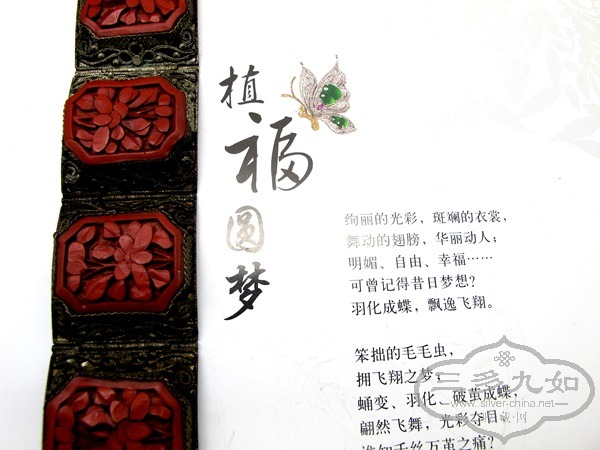 植
福
圆
梦
绚丽的光彩，斑斓的衣裳，
舞动的翅膀，华丽动人；
明媚、自由、幸福……
可曾记得昔日梦想？
羽化成蝶，飘逸飞翔。
笨拙的毛毛虫，
拥飞翔之梦；
蛹变、羽化、破茧成蝶，
翩然飞舞，光彩夺目。
谁知千丝万茧之痛？
三多九如
www.silver-china.net